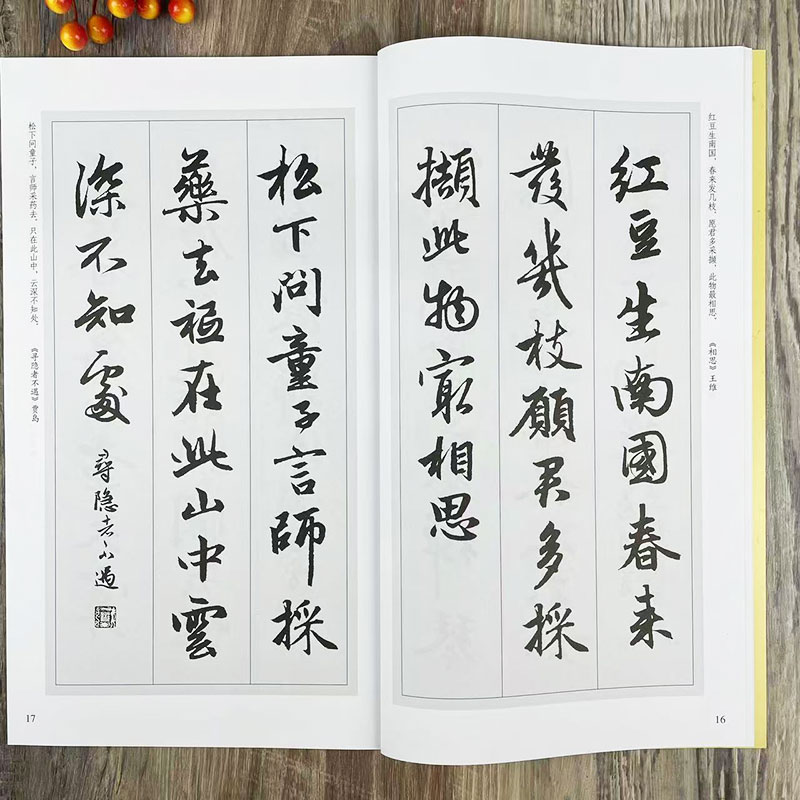 红豆生南国，春来发几枝。愿君多采撷，此物最相思。
《相思》王维
紅豆生南國春来
發幾枝願君多採
擷此物最相思
16
松下問童子言師採
藥去祗在此山中雲
深不知處
尋隐者不遇
松下问童子，言师采药去。只在此山中，云深不知处。
《寻隐者不遇》贾岛
17